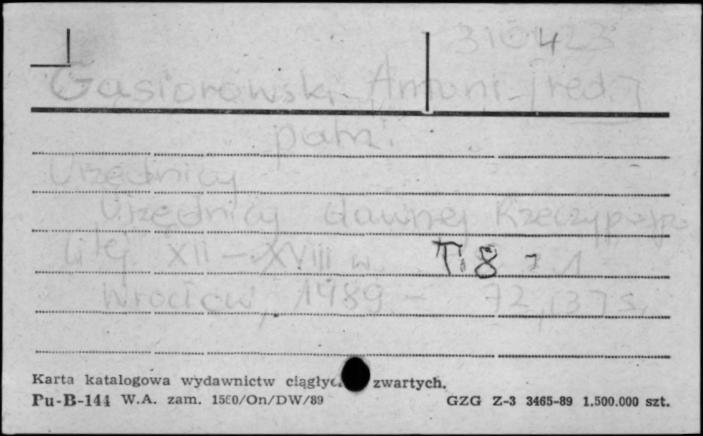 310423
Gąsiorowski Antoni [red.]
patrz:
Urzędnicy
Urzędnicy dawnej Rzeczypospo
litej XII-XVIII w. T.8
Wrocław, 1989 - 72,137 s.
Karta katalogowa wydawnictw zwartych.
Pu-B-144 W.A. zam. 1560/On/DW/89 GZG Z-3 3465-89 1.500.000 szt.